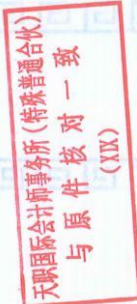 天职国际会计师事务所（特殊普通合伙）
与原件核对一致
（XIX）